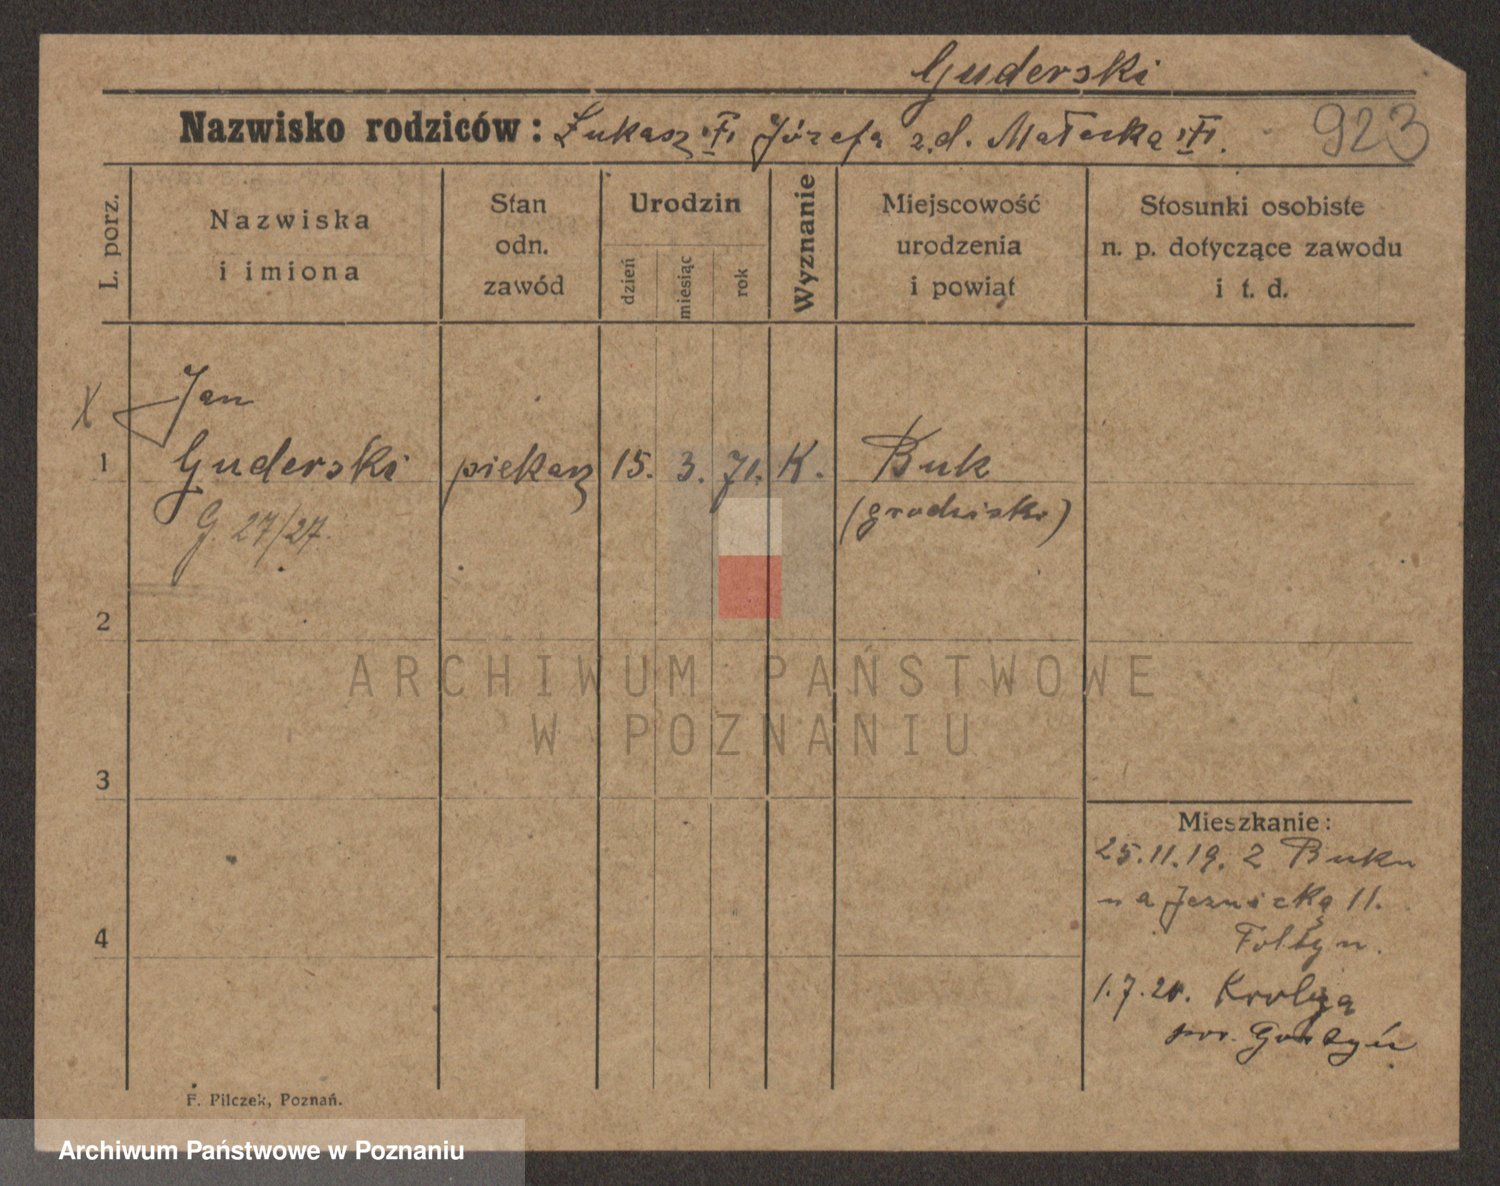 Guderski
Nazwisko rodziców: Łukasz Józefa z.d. Małecka
923
L. porz.
Nazwiska
i imiona
Stan
odn.
zawód
Urodzin
dzień
miesiąc
rok
Wyznanie
Miejscowość
urodzenia
i powiat
Stosunki osobiste
n. p. dotyczące zawodu
i t. d.
X
Jan
1 Guderski piekarz 15. 3. 71. K. Buk
G. 27/27. (grodziski)
2
ARCHIWUM PAŃSTWOWE
W POZNANIU
3
Mieszkanie:
25.11.19. z Buku
na 11.
4
1.7.20.
pow.
F. Pilczek, Poznań.
Archiwum Państwowe w Poznaniu